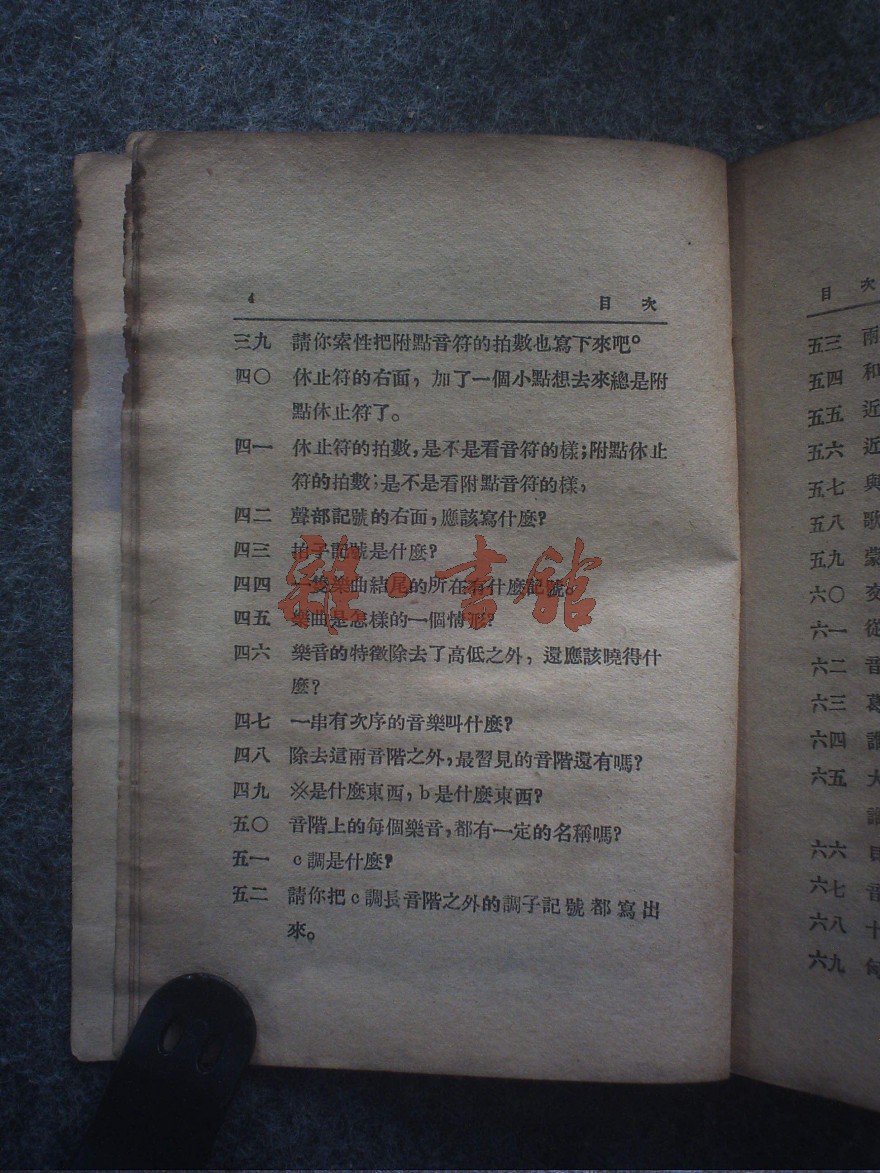 4 目次
三九 請你索性把附點音符的拍數也寫下來吧。
四〇 休止符的右面，加了一個小點想去來總是附
點休止符了。
四一 休止符的拍數，是不是看音符的樣；附點休止
符的拍數；是不是看附點音符的樣，
四二 聲部記號的右面，應該寫什麼？
四三 拍子記號是什麼？
四四 一隻樂曲結尾的所在有什麼記號。
四五 樂曲是怎樣的一個情形？
四六 樂音的特徵除去了高低之外，還應該曉得什
麼？
四七 一串有次序的音樂叫什麼？
四八 除去這兩音階之外，最習見的音階還有嗎？
四九 ※是什麼東西，b是什麼東西？
五〇 音階上的每個樂音，都有一定的名稱嗎？
五一 c調是什麼？
五二 請你把c調長音階之外的調子記號都寫出
來。
雜·書館
目次
五三 兩
五四 和
五五 近
五六 近
五七 與
五八 歌
五九 蒙
六〇
六一 從
六二 音
六三 葛
六四
六五 大
六六
六七 音
六八 十
六九